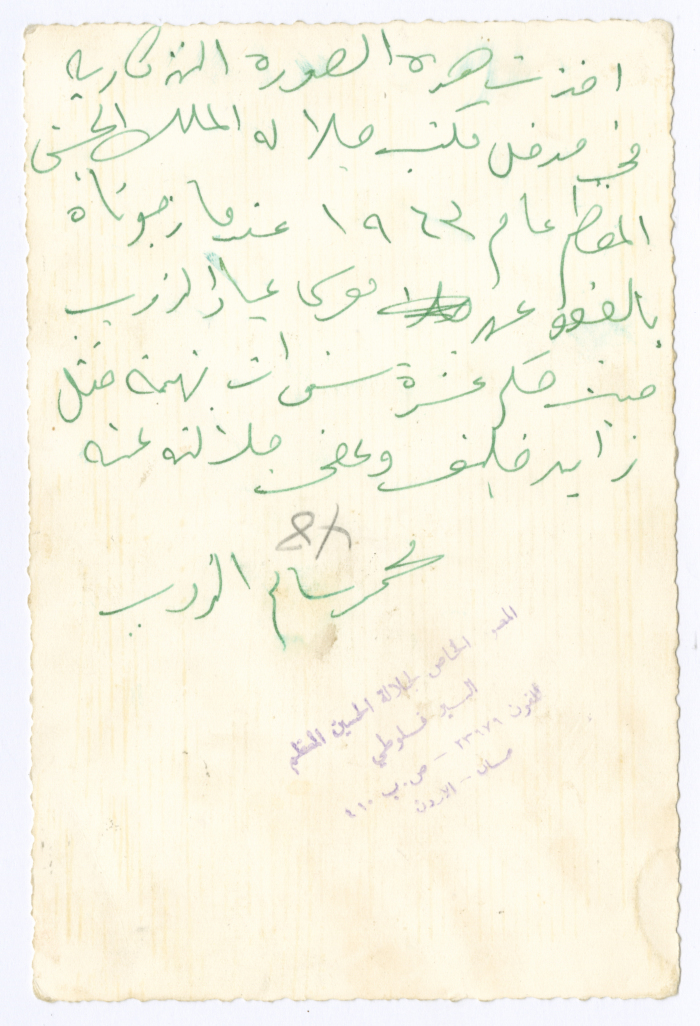 اخذت هذه الصورة التذكارية
في مدخل مكتب جلالة الملك الحسين
المعظم عام ١٩٦٣ عندما رجوناه
بالعفو عن موسى عياد الزريب
حيث حكم عشرة سنوات بتهمة قتل
زايد خليف وعفى جلالته عنه
8x
محمد سالم الزريب
المصور الخاص لجلالة الحسين المعظم
السيد
تلفون ٢٣٩٧٦ - ص.ب ٤١٠
عمان - الاردن